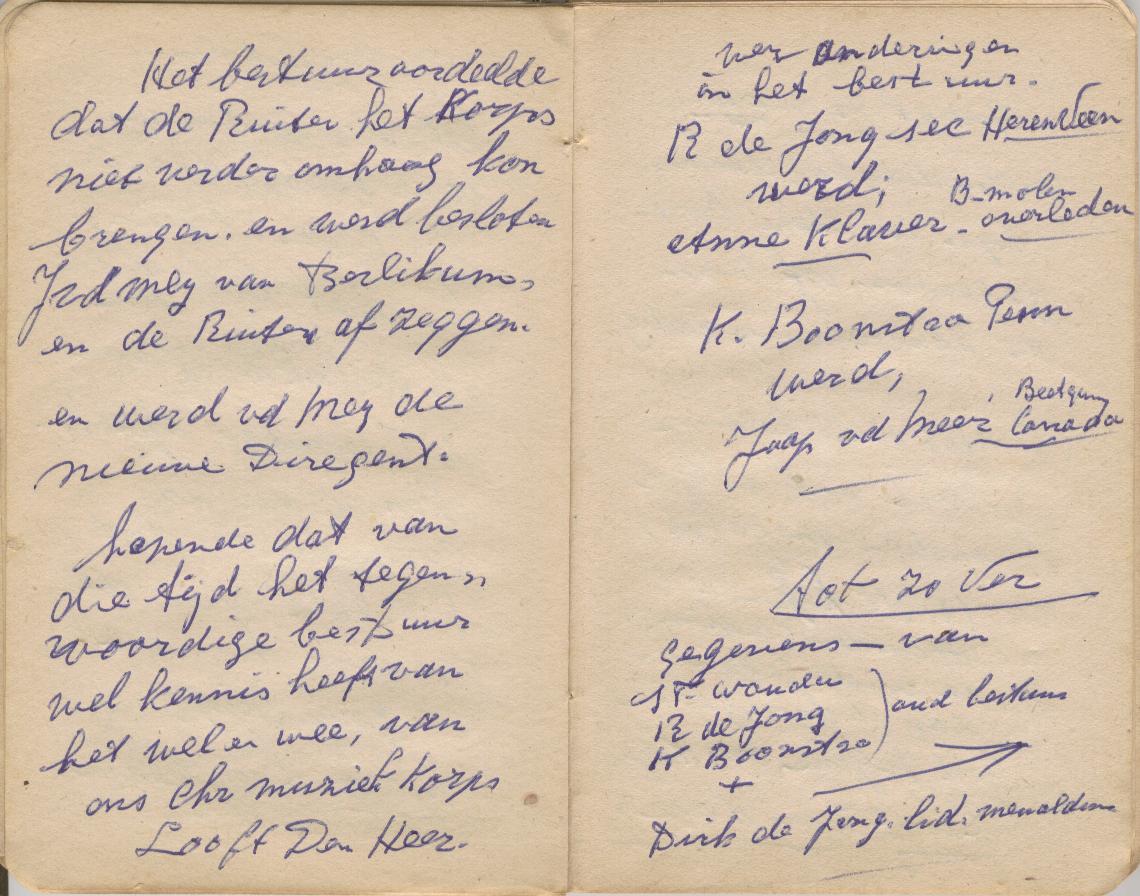 Het bestuur oordeelde
dat de Ruiter het Korps
niet verder omhoog kon
brengen. en werd besloten
Jvd mey van Berlikum,
en de Ruiter af zeggen.
en werd vd Mey de
nieuwe Diregent.
hopende dat van
die tijd het tegen,
woordige bestuur
wel kennis heeft van
het wel en wee, van
ons Chr muziek Korps
Looft Den Heer.
ver anderingen
in het bestuur.
R de Jong sec HerenVeen
werd;
Anne Klaver - B-molen overleden
K. Boonstra Penn
werd,
Jaap vd Meer, Canada
tot zo ver
gegevens - van
R de Jong
K Boonstra
oud bestuur
+
Dirk de Jong. lid. menaldum